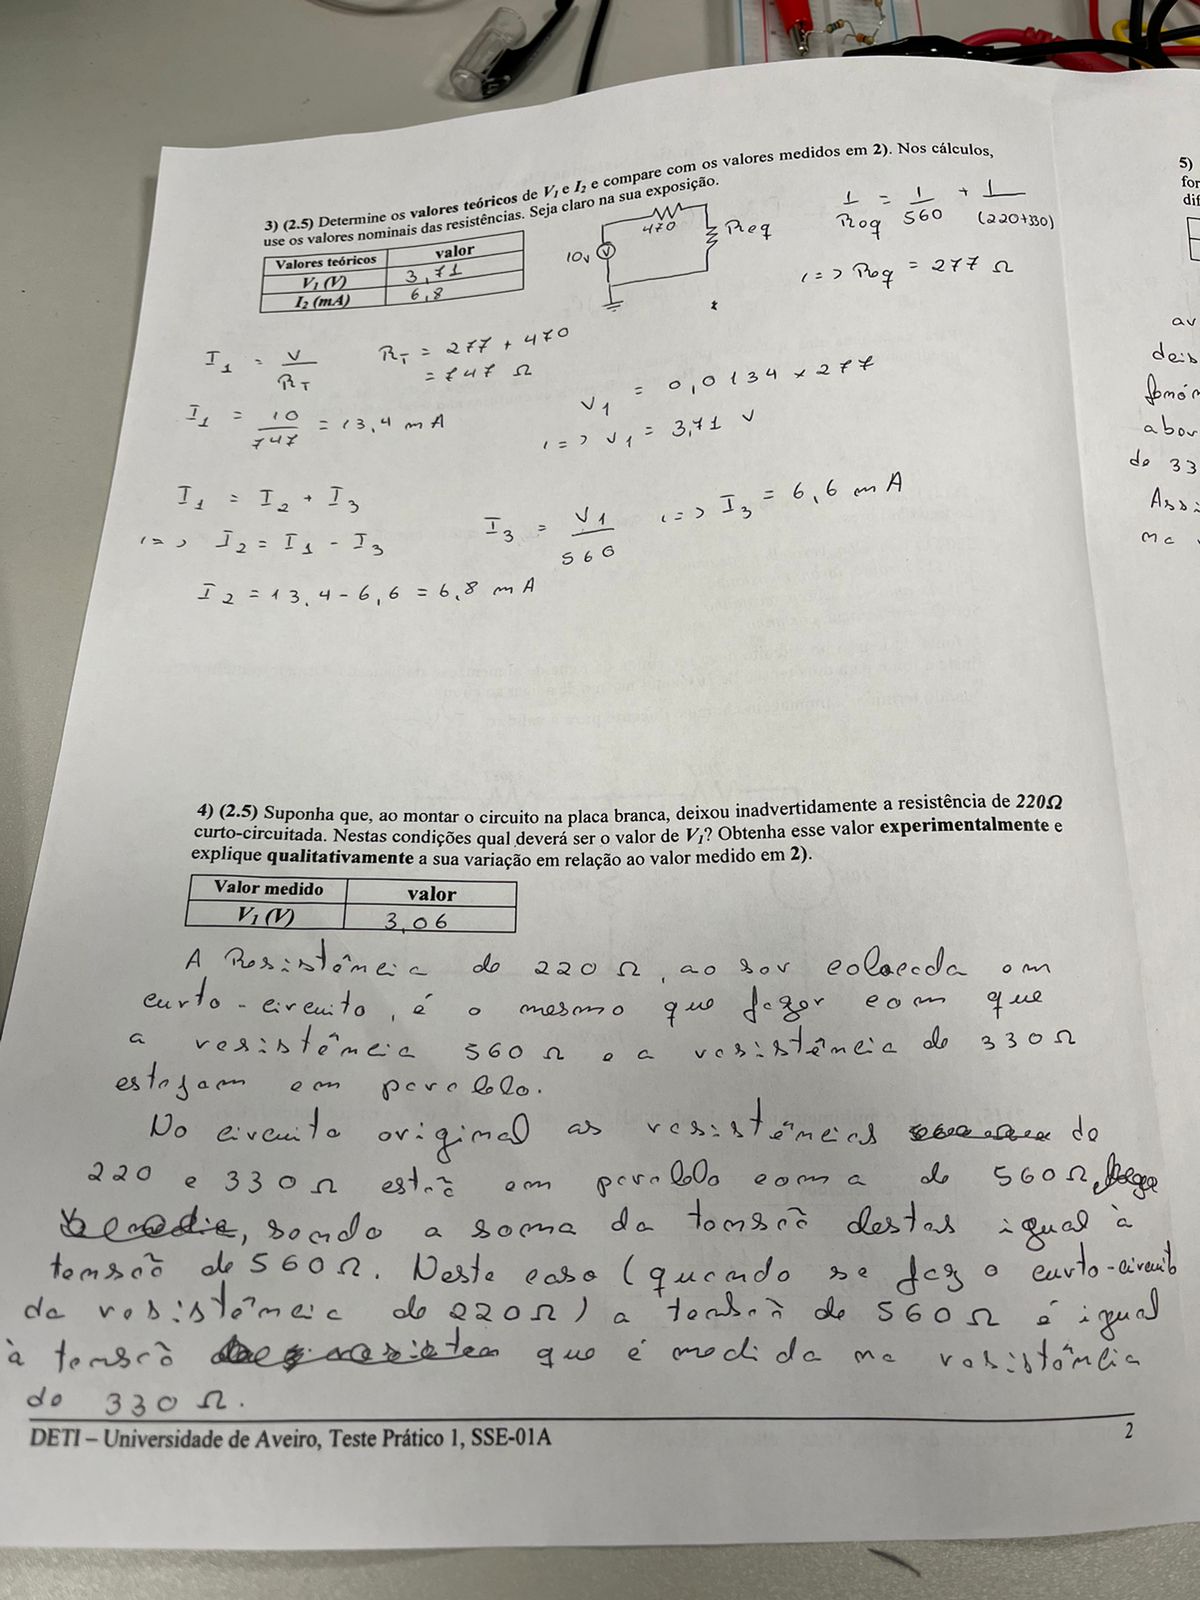 3) (2.5) Determine os valores teóricos de V1 e I2 e compare com os valores medidos em 2). Nos cálculos,
use os valores nominais das resistências. Seja claro na sua exposição.
Valores teóricos valor
V1 (V) 3,71
I2 (mA) 6,8
10v V 470 Req
1/Req = 1/560 + 1/(220+330)
(=) Req = 277 Ω
I1 = V/RT
RT = 277 + 470
= 747 Ω
I1 = 10/747 = 13,4 mA
V1 = 0,0134 × 277
(=) V1 = 3,71 V
I1 = I2 + I3
(=) I2 = I1 - I3
I3 = V1/560 (=) I3 = 6,6 mA
I2 = 13,4 - 6,6 = 6,8 mA
4) (2.5) Suponha que, ao montar o circuito na placa branca, deixou inadvertidamente a resistência de 220Ω
curto-circuitada. Nestas condições qual deverá ser o valor de V1? Obtenha esse valor experimentalmente e
explique qualitativamente a sua variação em relação ao valor medido em 2).
Valor medido valor
V1 (V) 3,06
A Resistência de 220Ω, ao ser colocada em
curto-circuito, é o mesmo que fazer com que
a resistência 560Ω e a resistência de 330Ω
estejam em paralelo.
No circuito original as resistências de
220 e 330Ω estão em paralelo com a de 560Ω,
, sendo a soma da tensão destas igual à
tensão de 560Ω. Neste caso (quando se faz o curto-circuito
da resistência de 220Ω) a tensão de 560Ω é igual
à tensão que é medida na resistência
de 330Ω.
DETI – Universidade de Aveiro, Teste Prático 1, SSE-01A
2
5)
for
dif
av
deis
fenón
abor
de 33
Assi